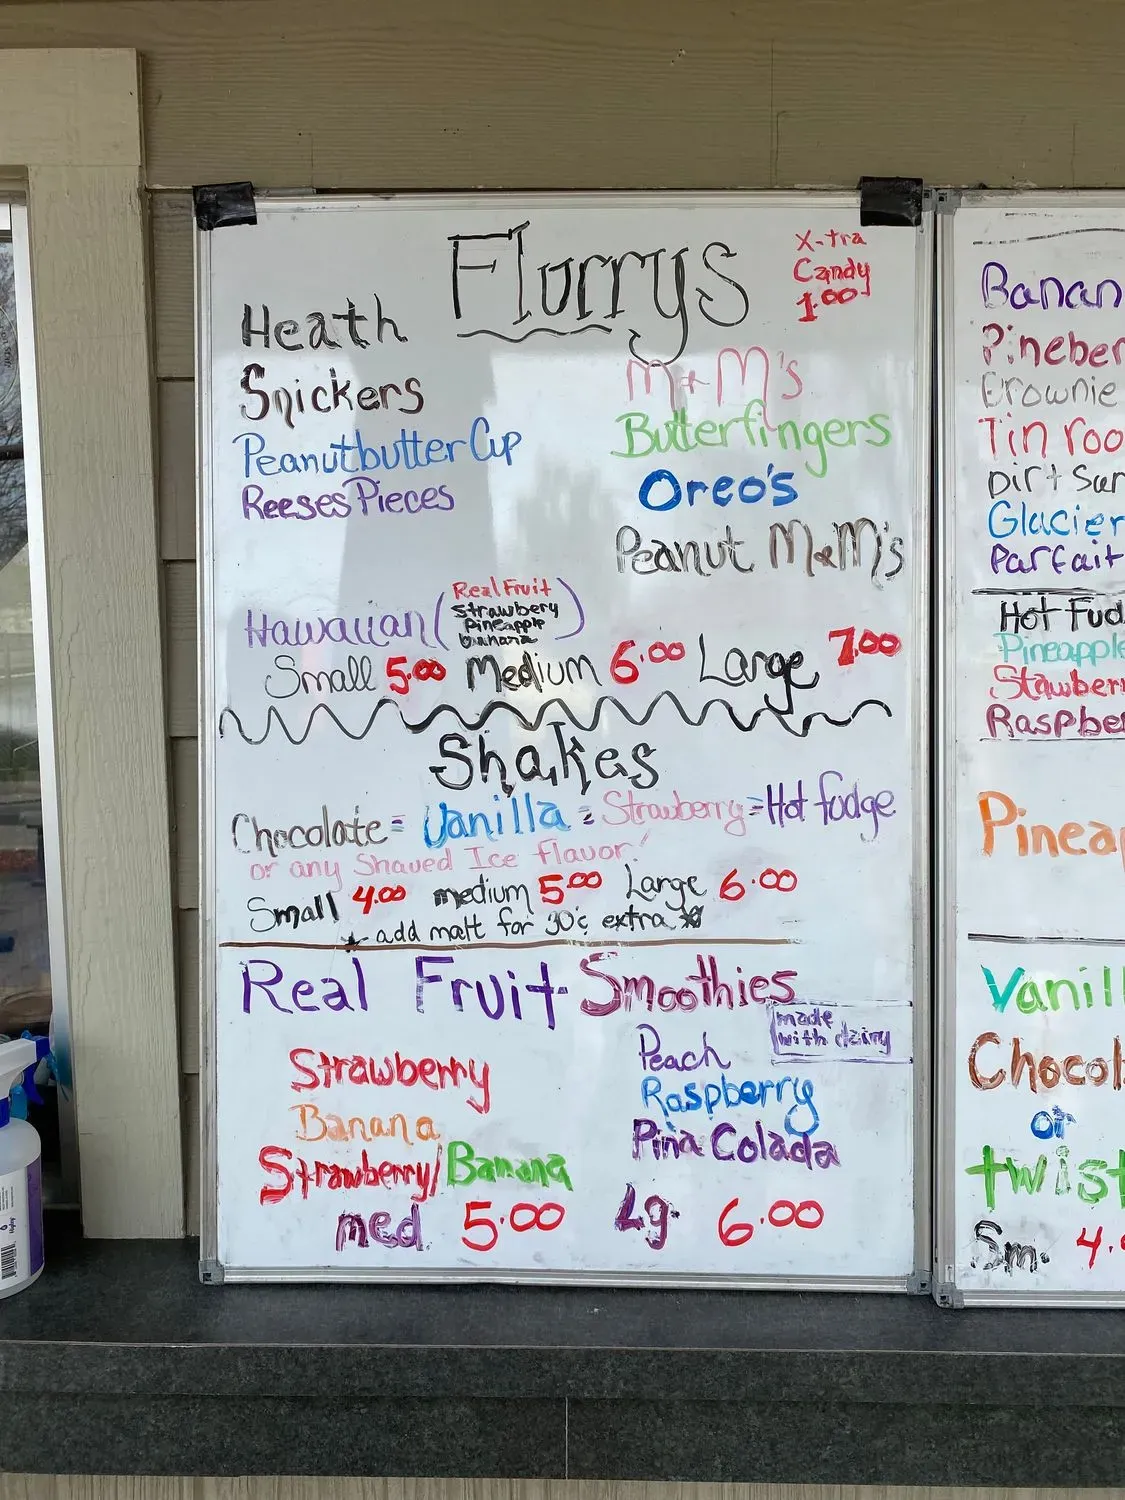 Flurrys
X-tra
Candy
1.00
Heath
Snickers
Peanutbutter Cup
Reeses Pieces
M+M's
Butterfingers
Oreo's
Peanut M&M's
Hawaiian (Real Fruit
Strawbery
Pineapple
banana)
Small 5.00 Medium 6.00 Large 7.00
Shakes
Chocolate = Vanilla = Strawberry = Hot fudge
or any Shaved Ice flavor!
Small 4.00 medium 5.00 Large 6.00
add malt for 30¢ extra
Real Fruit Smoothies
made
with dairy
Strawberry
Banana
Strawberry/Banana
Peach
Raspberry
Pina Colada
med 5.00 Lg. 6.00
Banan
Pineber
Brownie
Tin roo
Dirt Sun
Glacier
Parfait
Hot Fud
Pineapple
Stawberr
Raspbe
Pineap
Vanill
Chocol
or
twist
Sm. 4.